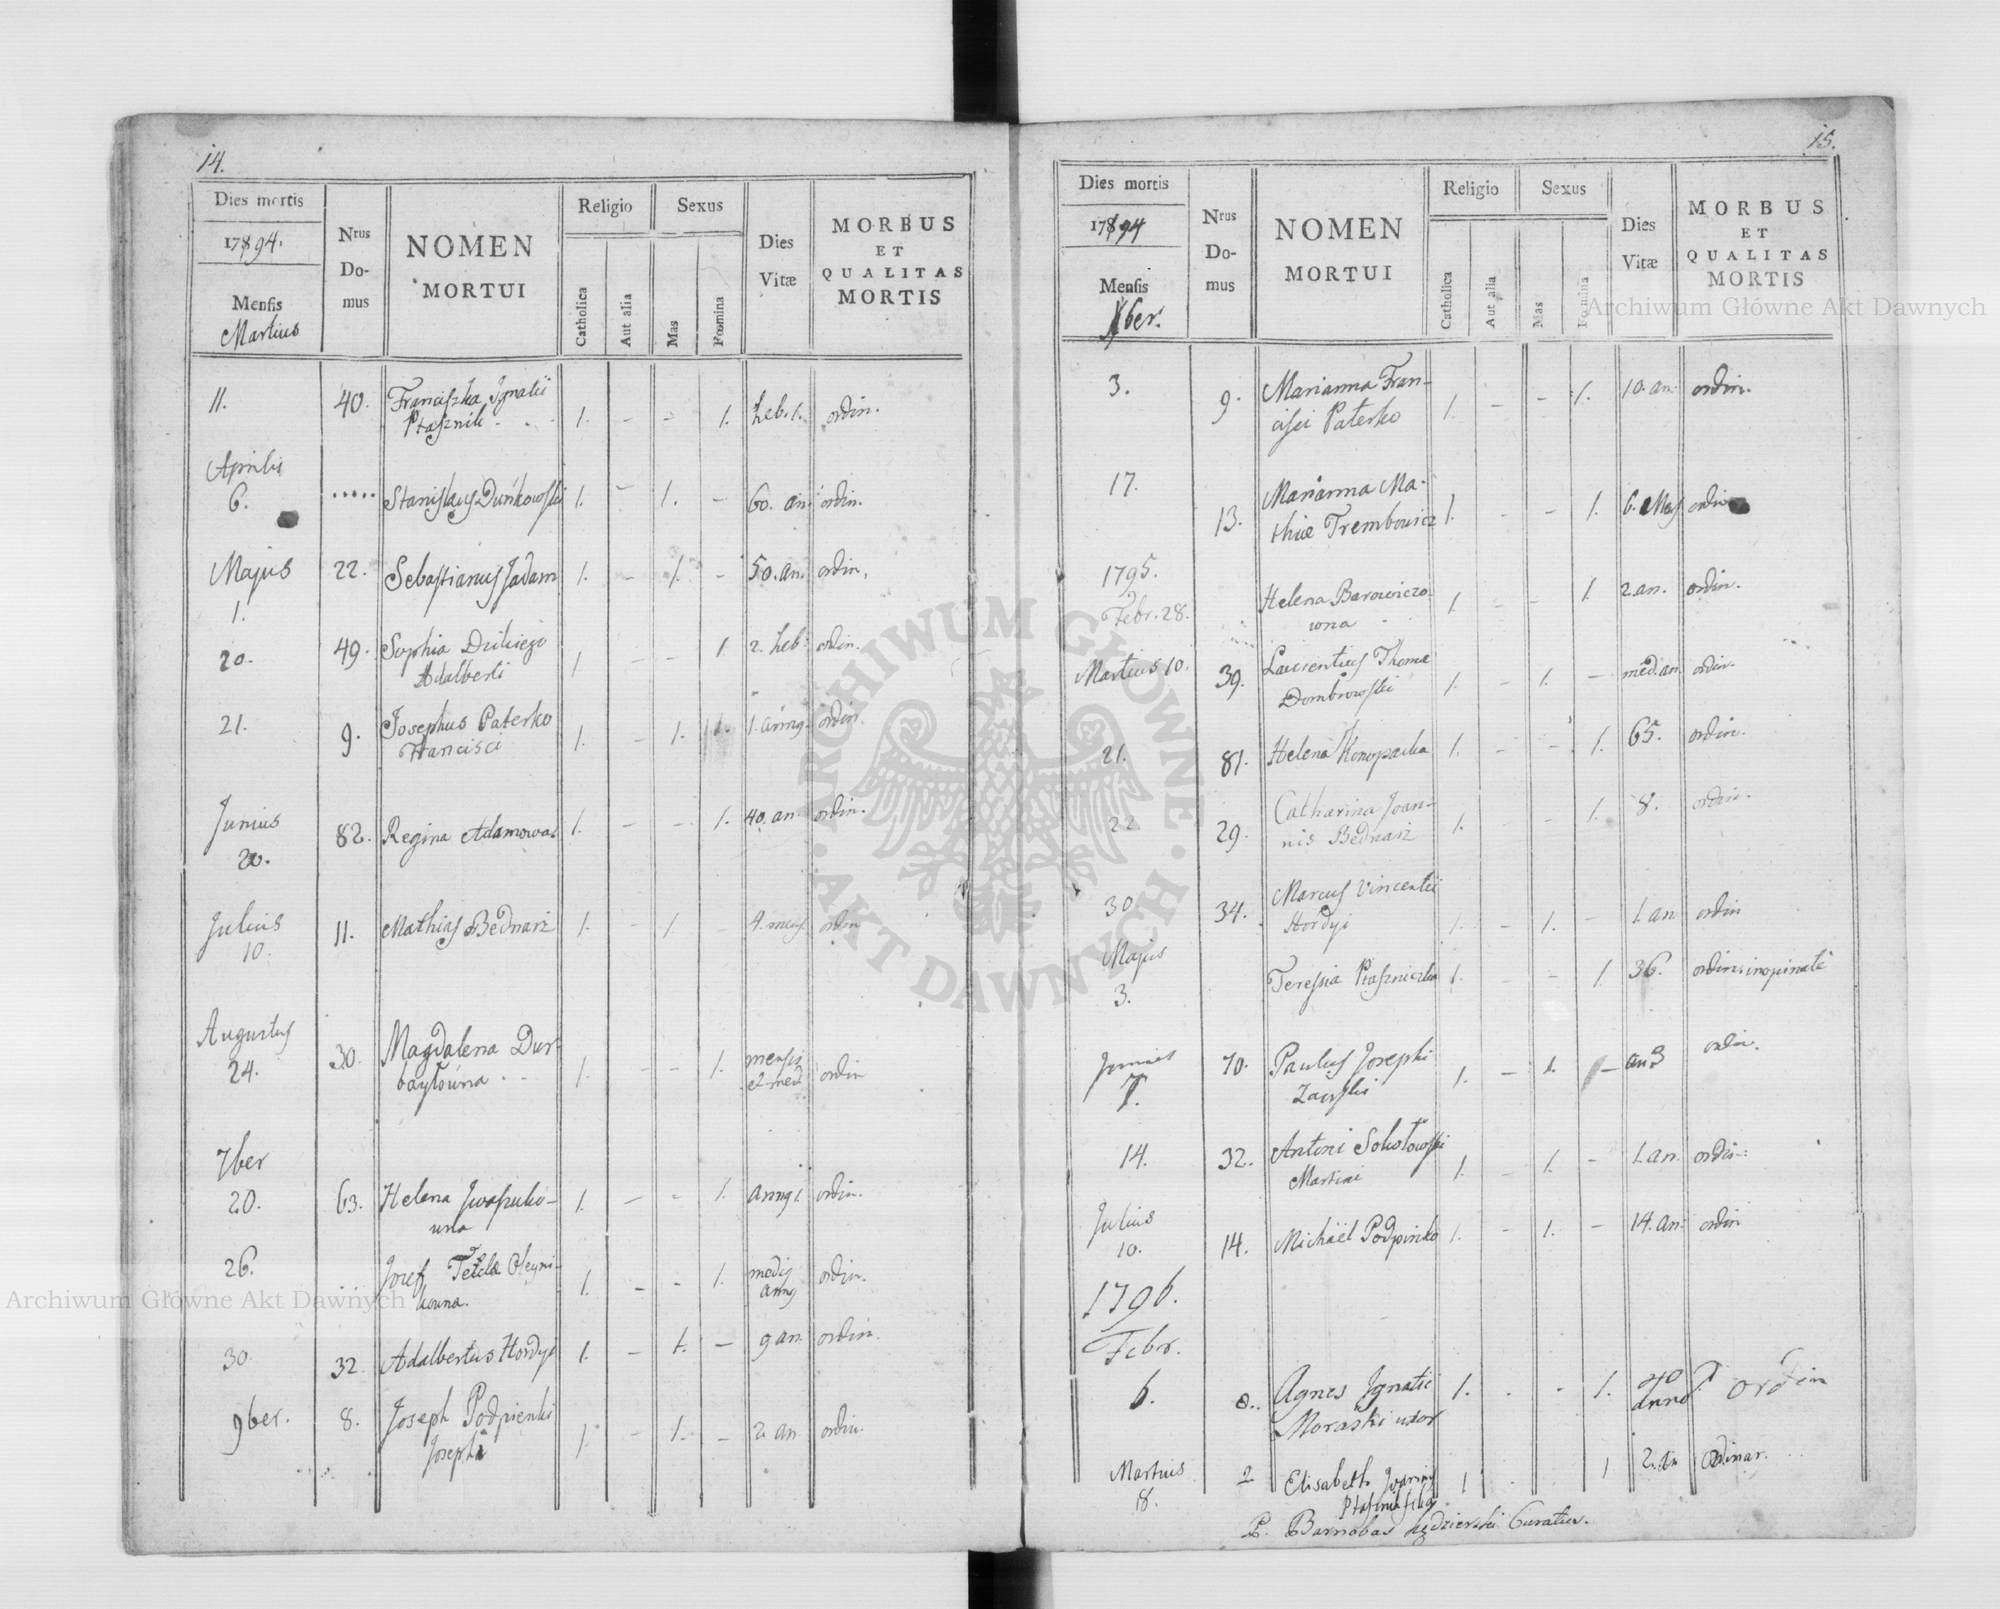 14.
Dies mortis
1794.
Mensis
Martius
Nrus
Do-
mus
NOMEN
MORTUI
Religio
Catholica
Aut alia
Sexus
Mas
Fœmina
Dies
Vitæ
MORBUS
ET
QUALITAS
MORTIS
11. 40. Franciszka Ignatii 1. - - 1. heb. 1. ordin.
Ptasznik
Aprilis
6. ..... Stanislaus Duńkowski 1. - 1. - 60. an. ordin.
Majus 22. Sebastianus Jadam 1. - 1. - 50. an. ordin.
1.
20. 49. Sophia Dzikiego 1 - - 1. 2. heb: ordin.
Adalberti
21. 9. Josephus Paterko 1. - 1. 1. ordin.
Francisci
Junius 82. Regina Adamowa 1. - - 1. 40. an. ordin.
20.
Julius 11. Mathias Bednarz 1. - 1. - 4. mens ordin
10.
Augustus
24. 30. Magdalena Dur- 1. - - 1. mensis ordin
bayłówna et med
7ber
20. 63. Helena 1. - - 1. ordin.
wna
26. ... Josef Tekla Oleyni- 1. - - 1. ordin.
kowna.
30. 32. Adalbertus Hordyi 1. - 1. - 9 an. ordin.
9ber. 8. Joseph Podpienki 1. - 1. - 2. an ordin.
Josephi
15.
Dies mortis
1794
Mensis
Xber.
Nrus
Do-
mus
NOMEN
MORTUI
Religio
Catholica
Aut alia
Sexus
Mas
Fœmina
Dies
Vitæ
MORBUS
ET
QUALITAS
MORTIS
3. 9. Marianna Fran- 1. - - 1. 10. an. ordin.
cisci Paterko
17. 13. Marianna Ma- 1. - - 1. 6. Mens ordin
thiæ Trembowicz
1795.
Febr. 28. Helena Barowiczo- 1. - - 1. 2. an. ordin.
wna
Martius 10. 39. Laurentius Thomæ 1. - 1. - med. an. ordin.
Dombrowski
21. 81. Helena Konopacka 1. - - 1. 65. ordin.
22 29. Catharina Joan- 1. - - 1. 8. ordin.
nis Bednarz
30 34. Marcus Vincentii 1. - 1. - 1. an ordin
Hordyi
Majus
3. Teressia Ptaszniczka 1. - - 1. 36. ordin: inopinatè
Junius 70. Paulus Josephi 1. - 1. - an 3 ordin.
7. Zawski
14. 32. Antoni Sokołowski 1. - 1. - 1. an. ordin:
Martini
Julius
10. 14. Michaël Podpinko 1. - 1. - 14. an. ordin
1796.
Febr.
6. 8. Agnes Ignatii 1. . - 1. 40 ordin
Moraski uxor anno
Martius 2 Elisabeth 1 . 1 2. an Ordinar.
18. filia
P. Barnabas Kędzierski Curatus.
Archiwum Główne Akt Dawnych
Archiwum Główne Akt Dawnych
ARCHIWUM GŁÓWNE
· AKT DAWNYCH ·